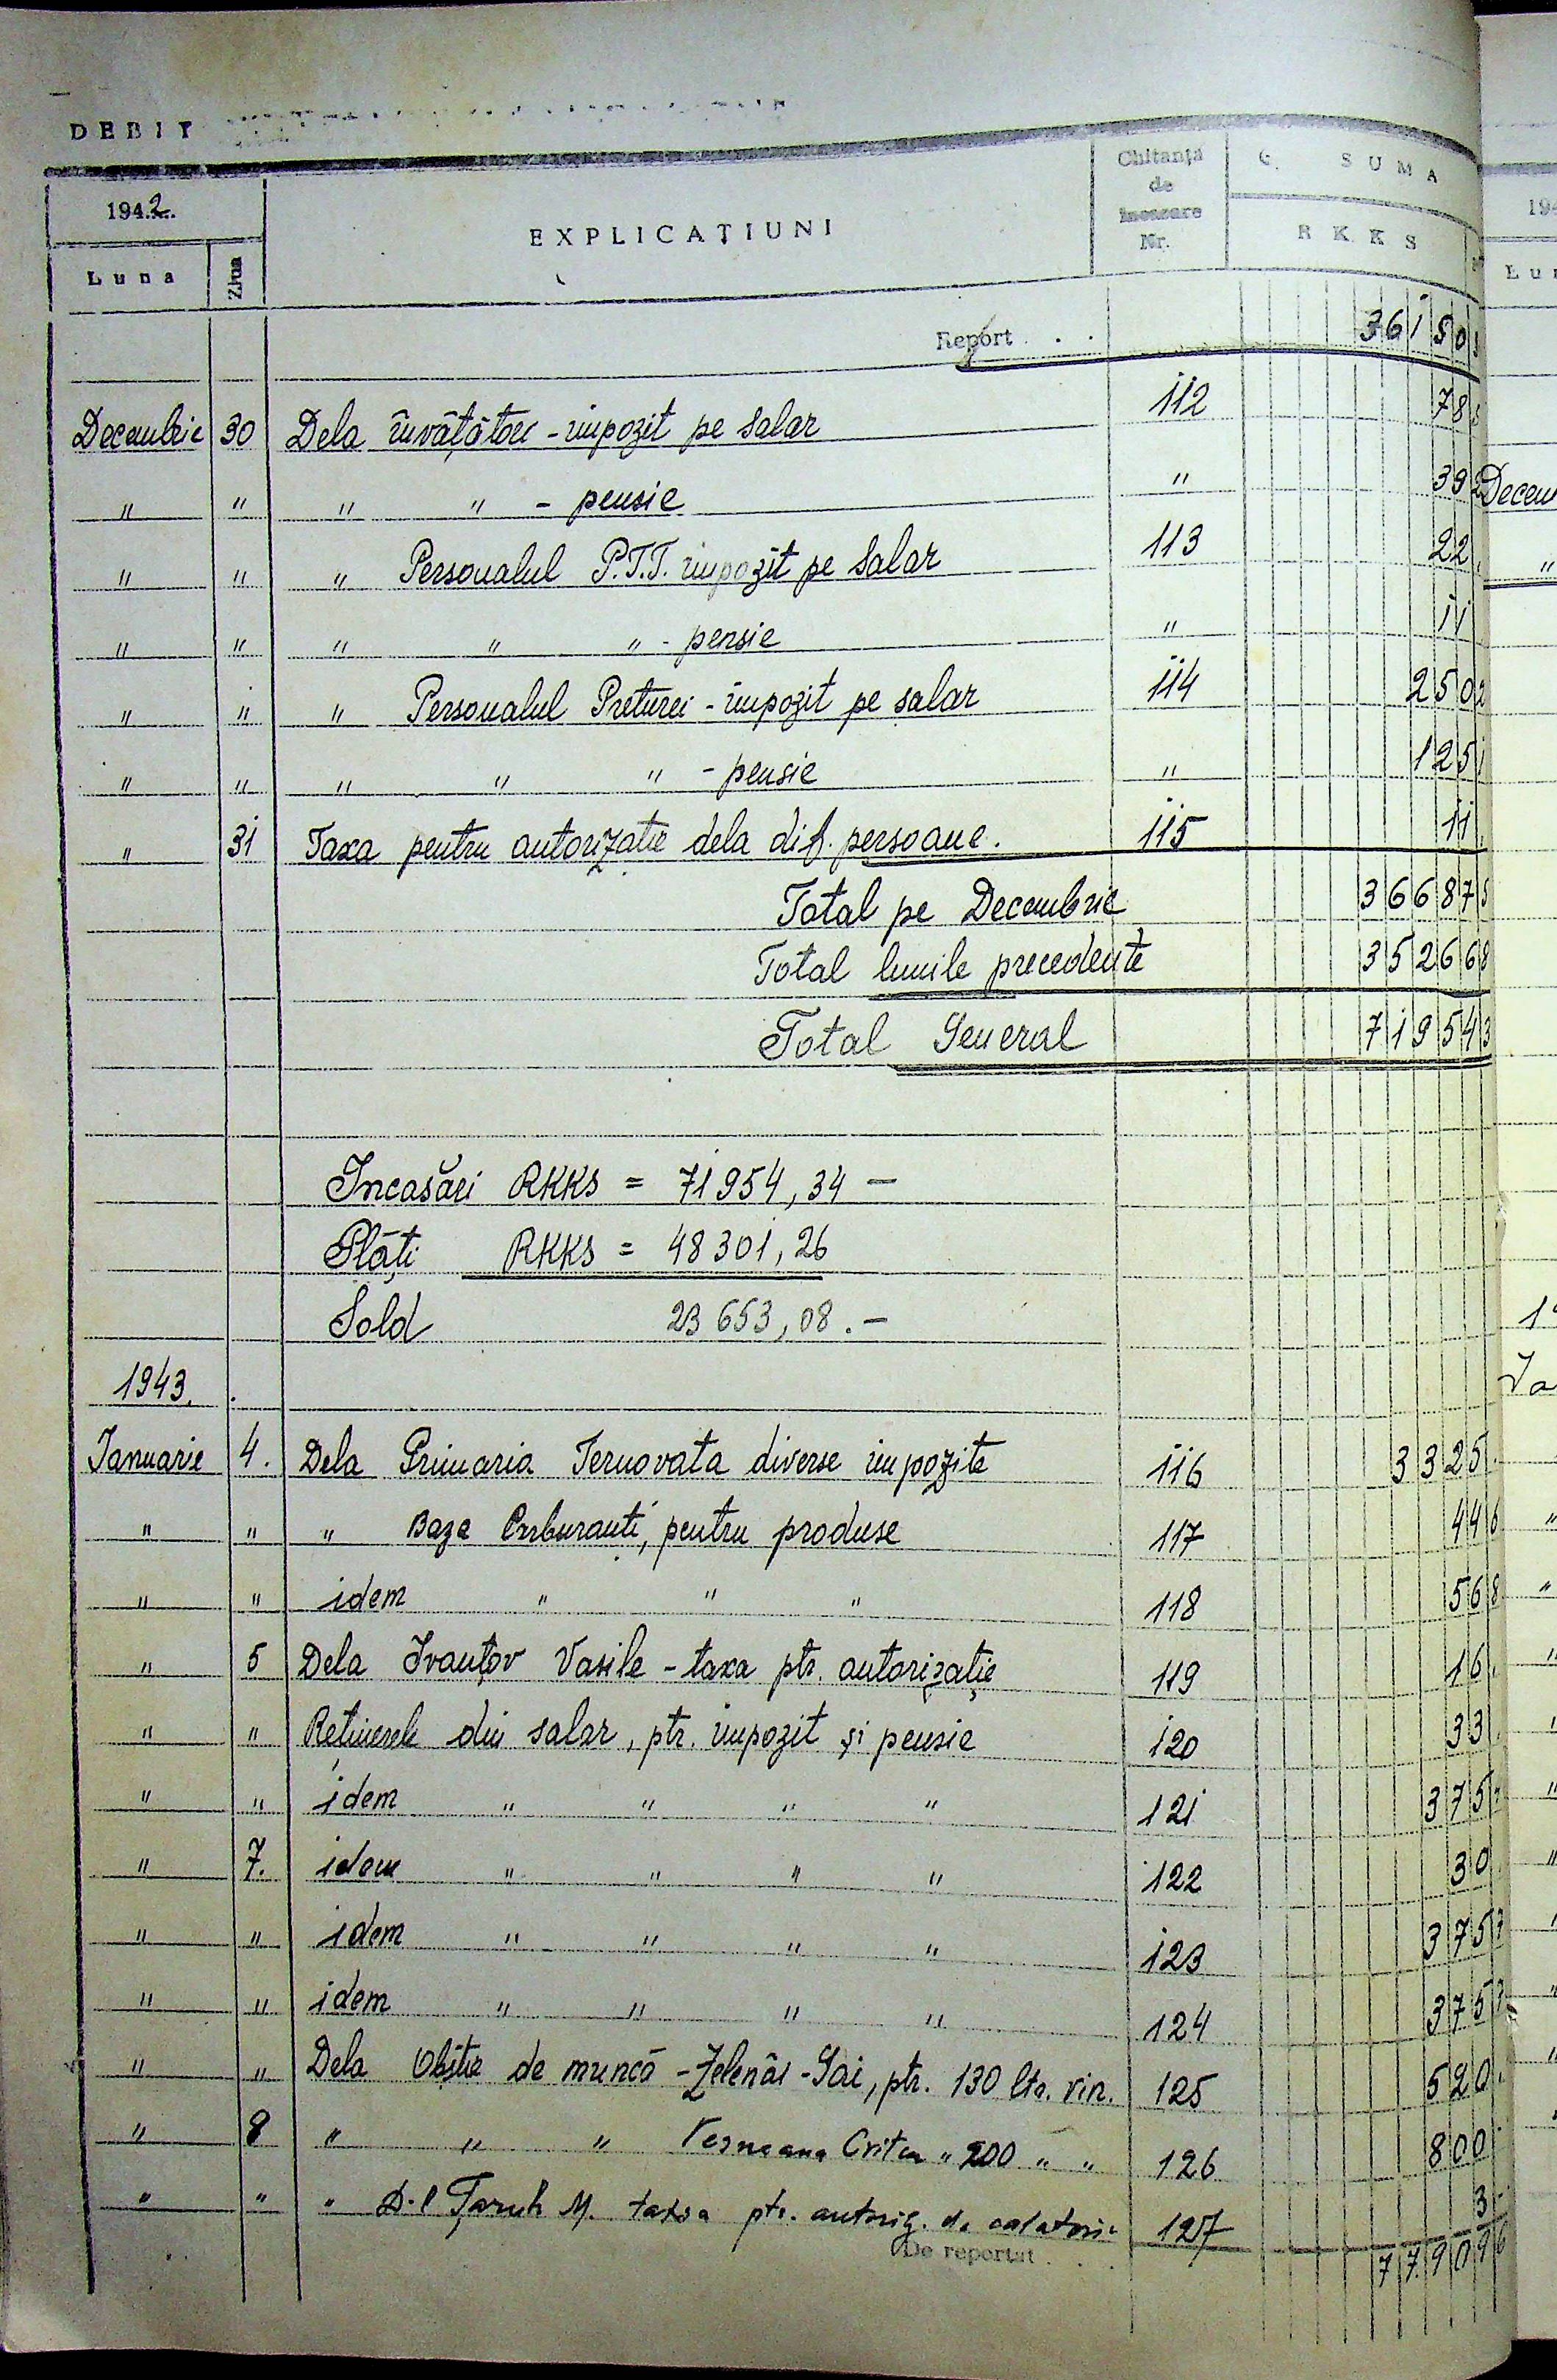 DEBIT
1942 EXPLICAȚIUNI Chitanța de Nr. SUMA
Luna Ziua RKKS
Report . . 36150
Decembrie 30 Dela învățători - impozit pe salar 112 78
" " " " - pensie " 39
" " " Personalul P.T.T. impozit pe salar 113 22
" " " " " - pensie " 11
" " " Personalul Preturei - impozit pe salar 114 2502
" " " " " - pensie " 125
" 31 Taxa pentru autorizație dela dif. persoane. 115 11
Total pe Decembrie 36687
Total lunile precedente 352668
Total General 719543
Incasări RKKS = 71954,34 —
Plăți RKKS = 48301,26
Sold 23653,08.—
1943.
Ianuarie 4. Dela Primaria Ternovata diverse impozite 116 3325
" " " Baza Carburanti, pentru produse 117 446
" " idem " " " 118 568
" 5 Dela Ivanțov Vasile - taxa ptr. autorizație 119 16
" " Reținerele din salar, ptr. impozit și pensie 120 33
" " idem " " " " 121 375
" 7. idem " " " " 122 30
" " idem " " " " 123 375
" " idem " " " " 124 375
" " Dela Obștie de muncă - Zelenâi - Gai, ptr. 130 ltr. vin. 125 520
" 8 " " " " 200 " " 126 800
" " " D-l M. taxsa ptr. autoriz. de calatorie 127 3-
De reportat . . . 779096